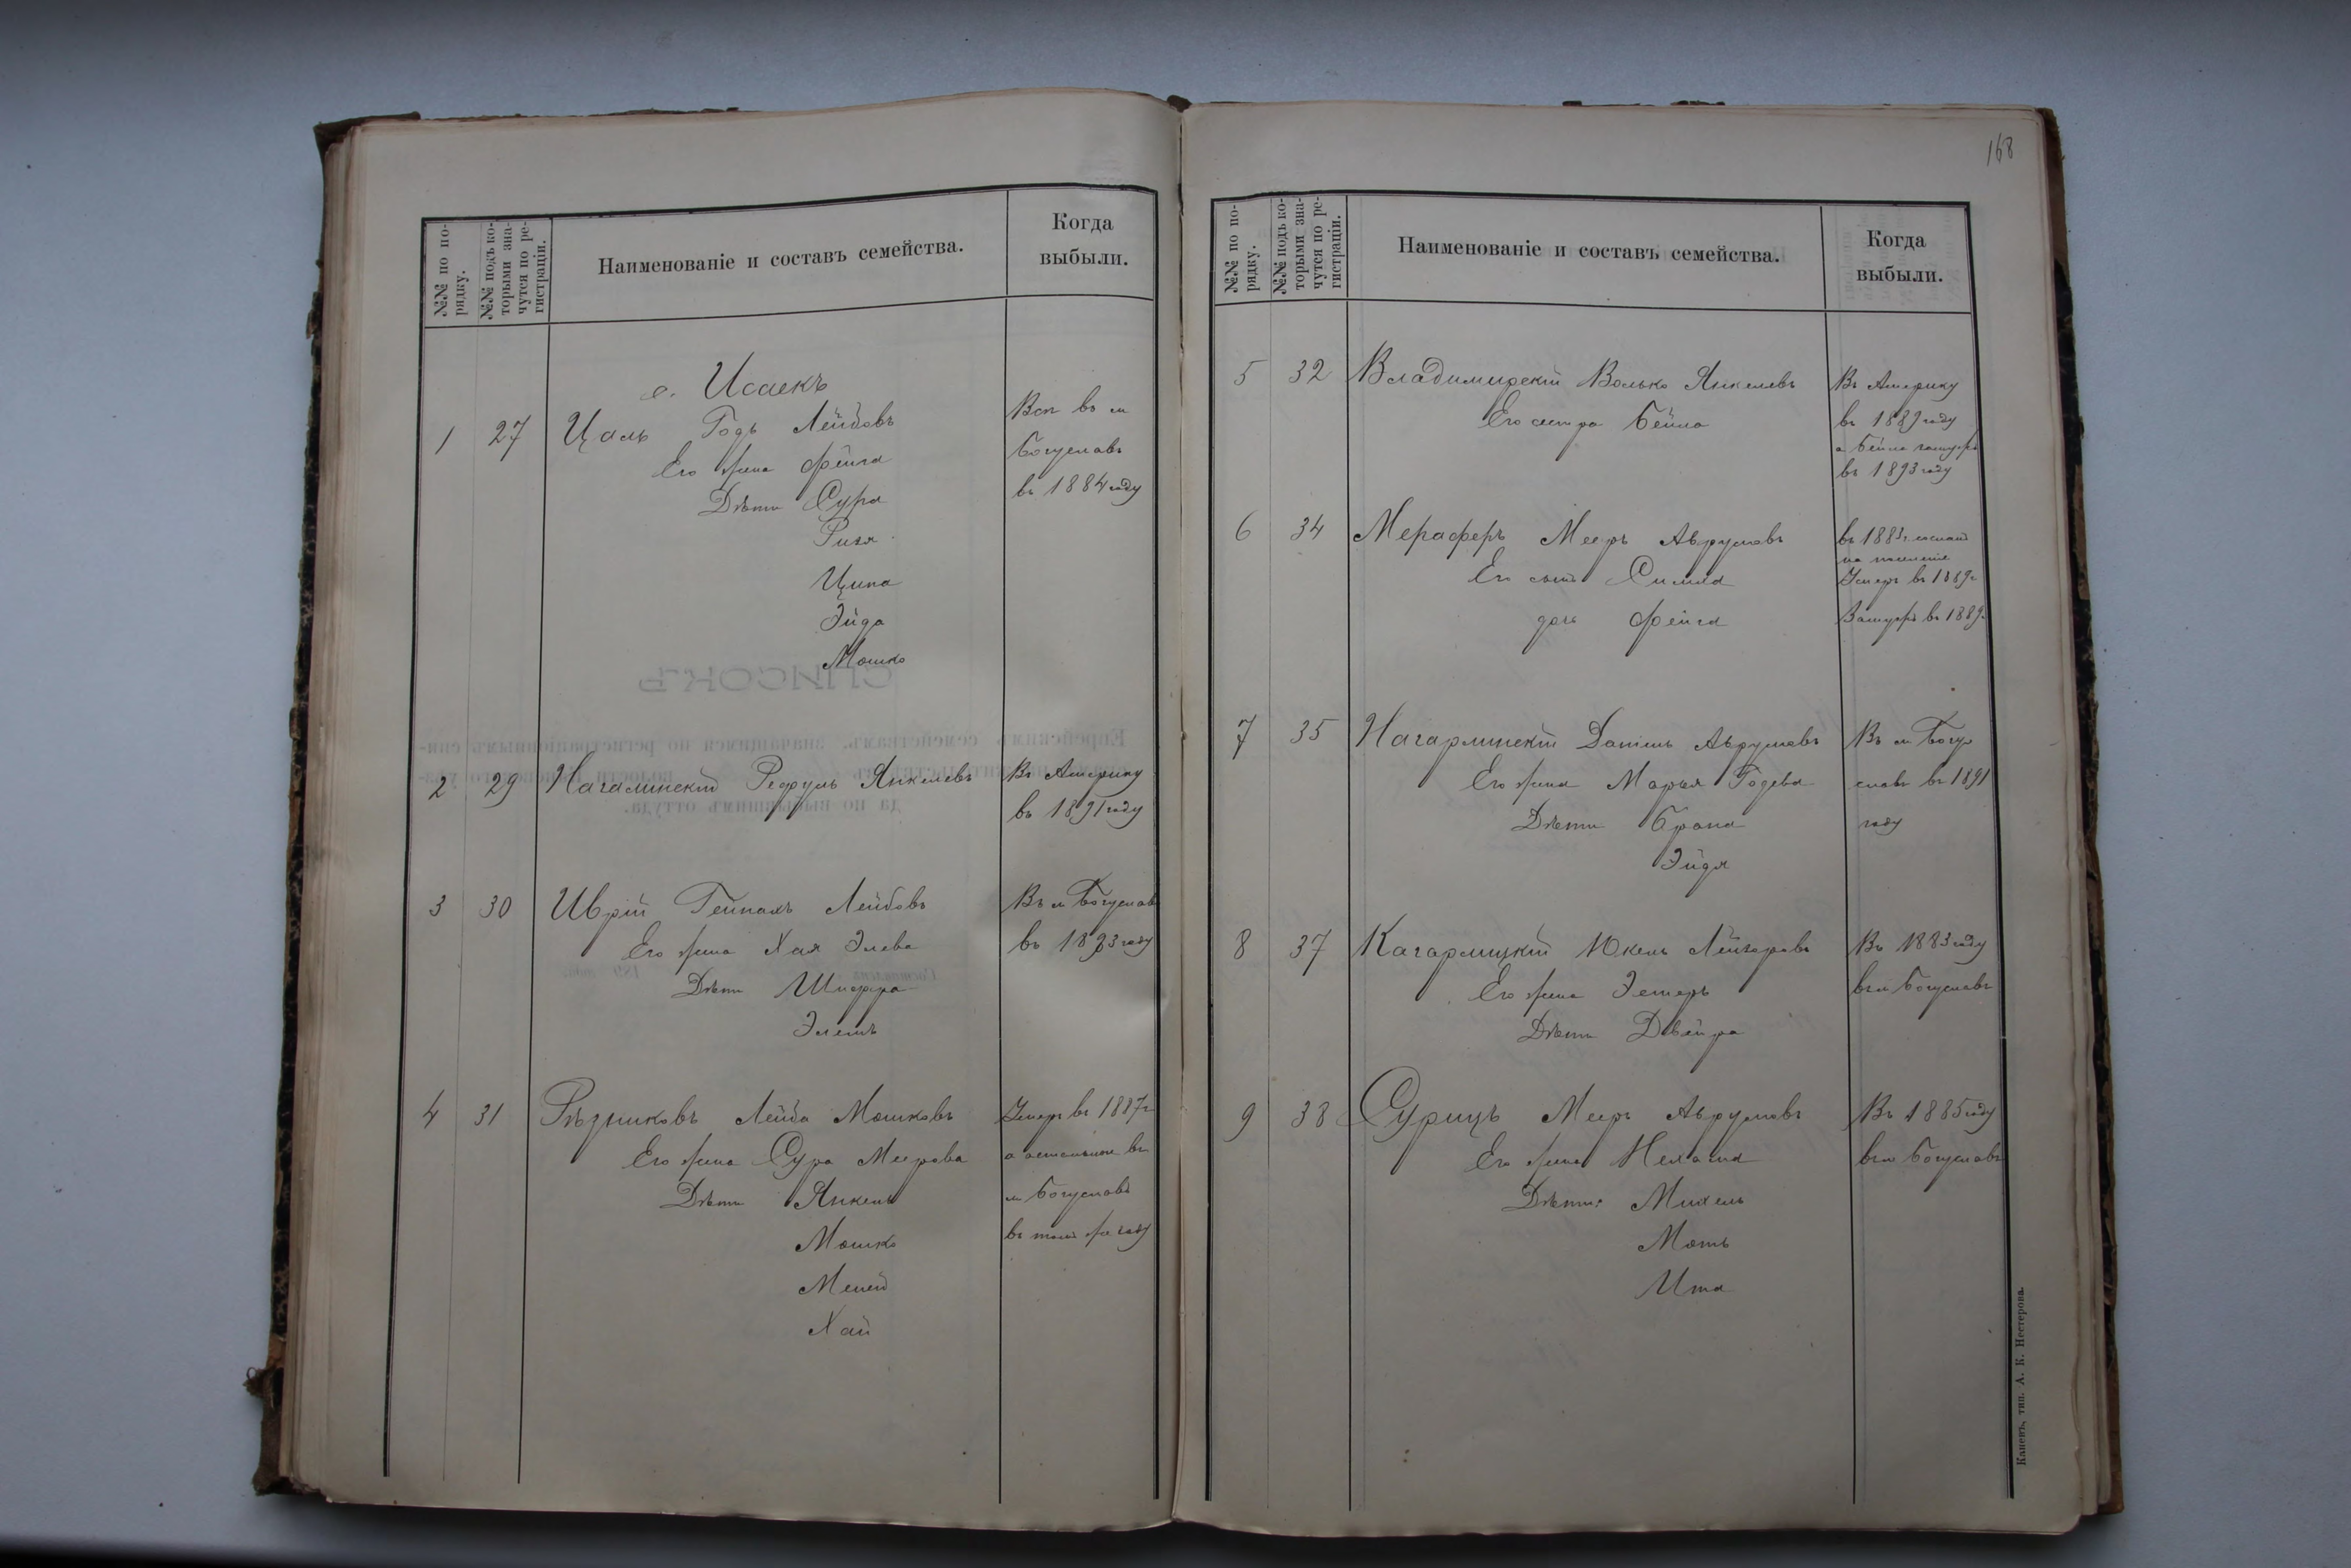 №№ по по-
рядку.
№№ подъ ко-
торыми зна-
чутся по ре-
гистраціи.
Наименованіе и составъ семейства.
Когда
выбыли.
с. Исаекъ
1 27 Цаль Годь Лейбовъ
Его жена Фейга
Дѣти Сура
Ризя
Ципа
Эйда
Мошко
Вси въ м
Богуславъ
въ 1884 году
2 29 Нагалинскій Рефуль Янкелевъ
Въ Америку
въ 1891 году
3 30 Иврій Гейнахъ Лейбовъ
Его жена Хая Элева
Дѣти Шифра
Элешъ
Въ м Богуславъ
въ 1893 году
4 31 Рѣзниковъ Лейба Мошковъ
Его жена Сура Меерова
Дѣти Янкель
Мошко
Хай
Умеръ въ 1887 г
а остальные въ
м Богуславъ
въ томъ же году
168
№№ по по-
рядку.
№№ подъ ко-
торыми зна-
чутся по ре-
гистраціи.
Наименованіе и составъ семейства.
Когда
выбыли.
5 32 Владимирскій Волько Янкелевъ
Его сестра Бейла
Въ Америку
въ 1889 году
а Бейла замужъ
въ 1893 году
6 34 Мерафферъ Мееръ Аврумовъ
Его сынъ Симха
дочь Фейга
въ 1883 г.
на поселеніе
Умеръ въ 1889 г
Замужъ въ 1889 г
7 35 Нагарлинскій Даніилъ Аврумовъ
Его жена Марья Годева
Дѣти Брана
Эйдя
Въ м Богу
славъ въ 1891
году
8 37 Кагарлицкій Юкель Лейзоровъ
Его жена Эстеръ
Дѣти Двейра
Въ 1883 году
въ м Богуславъ
9 38 Сурицъ Мееръ Аврумовъ
Его жена Нехама
Дѣти: Михель
Моть
Ита
Въ 1885 году
въ м Богуславъ
Каневъ, тип. А. К. Нестерова.